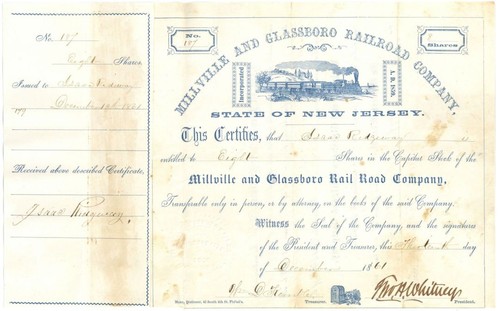 No. 197
Eight Shares
Issued to Isaac Ridgway
December 1861
Received above described Certificate,
Isaac Ridgway
186
No.
197
8
Shares
MILLVILLE AND GLASSBORO RAILROAD COMPANY,
Incorporated
A. D. 1859.
STATE OF NEW JERSEY.
This Certifies, that Isaac Ridgway is
entitled to Eight Shares in the Capital Stock of the
Millville and Glassboro Rail Road Company,
Transferable only in person, or by attorney, on the books of the said Company.
Witness the Seal of the Company, and the signatures
of the President and Treasurer, this day
of December 1861
Treasurer
Thos. H. Whitney
President